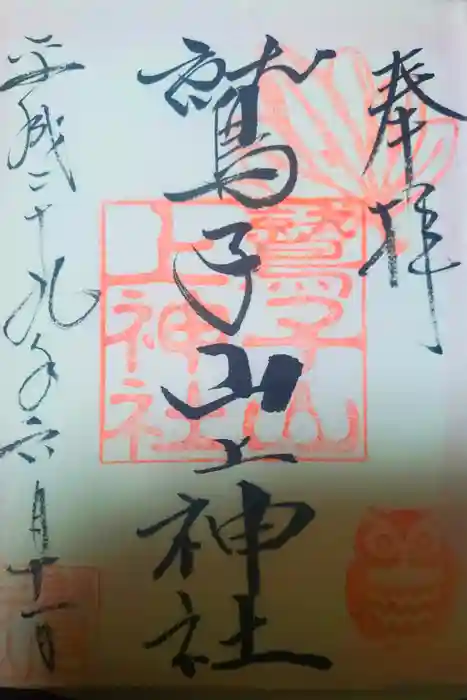 奉拝
鷲子山上神社
鷲子山
上神社
平成二十九年六月十一日